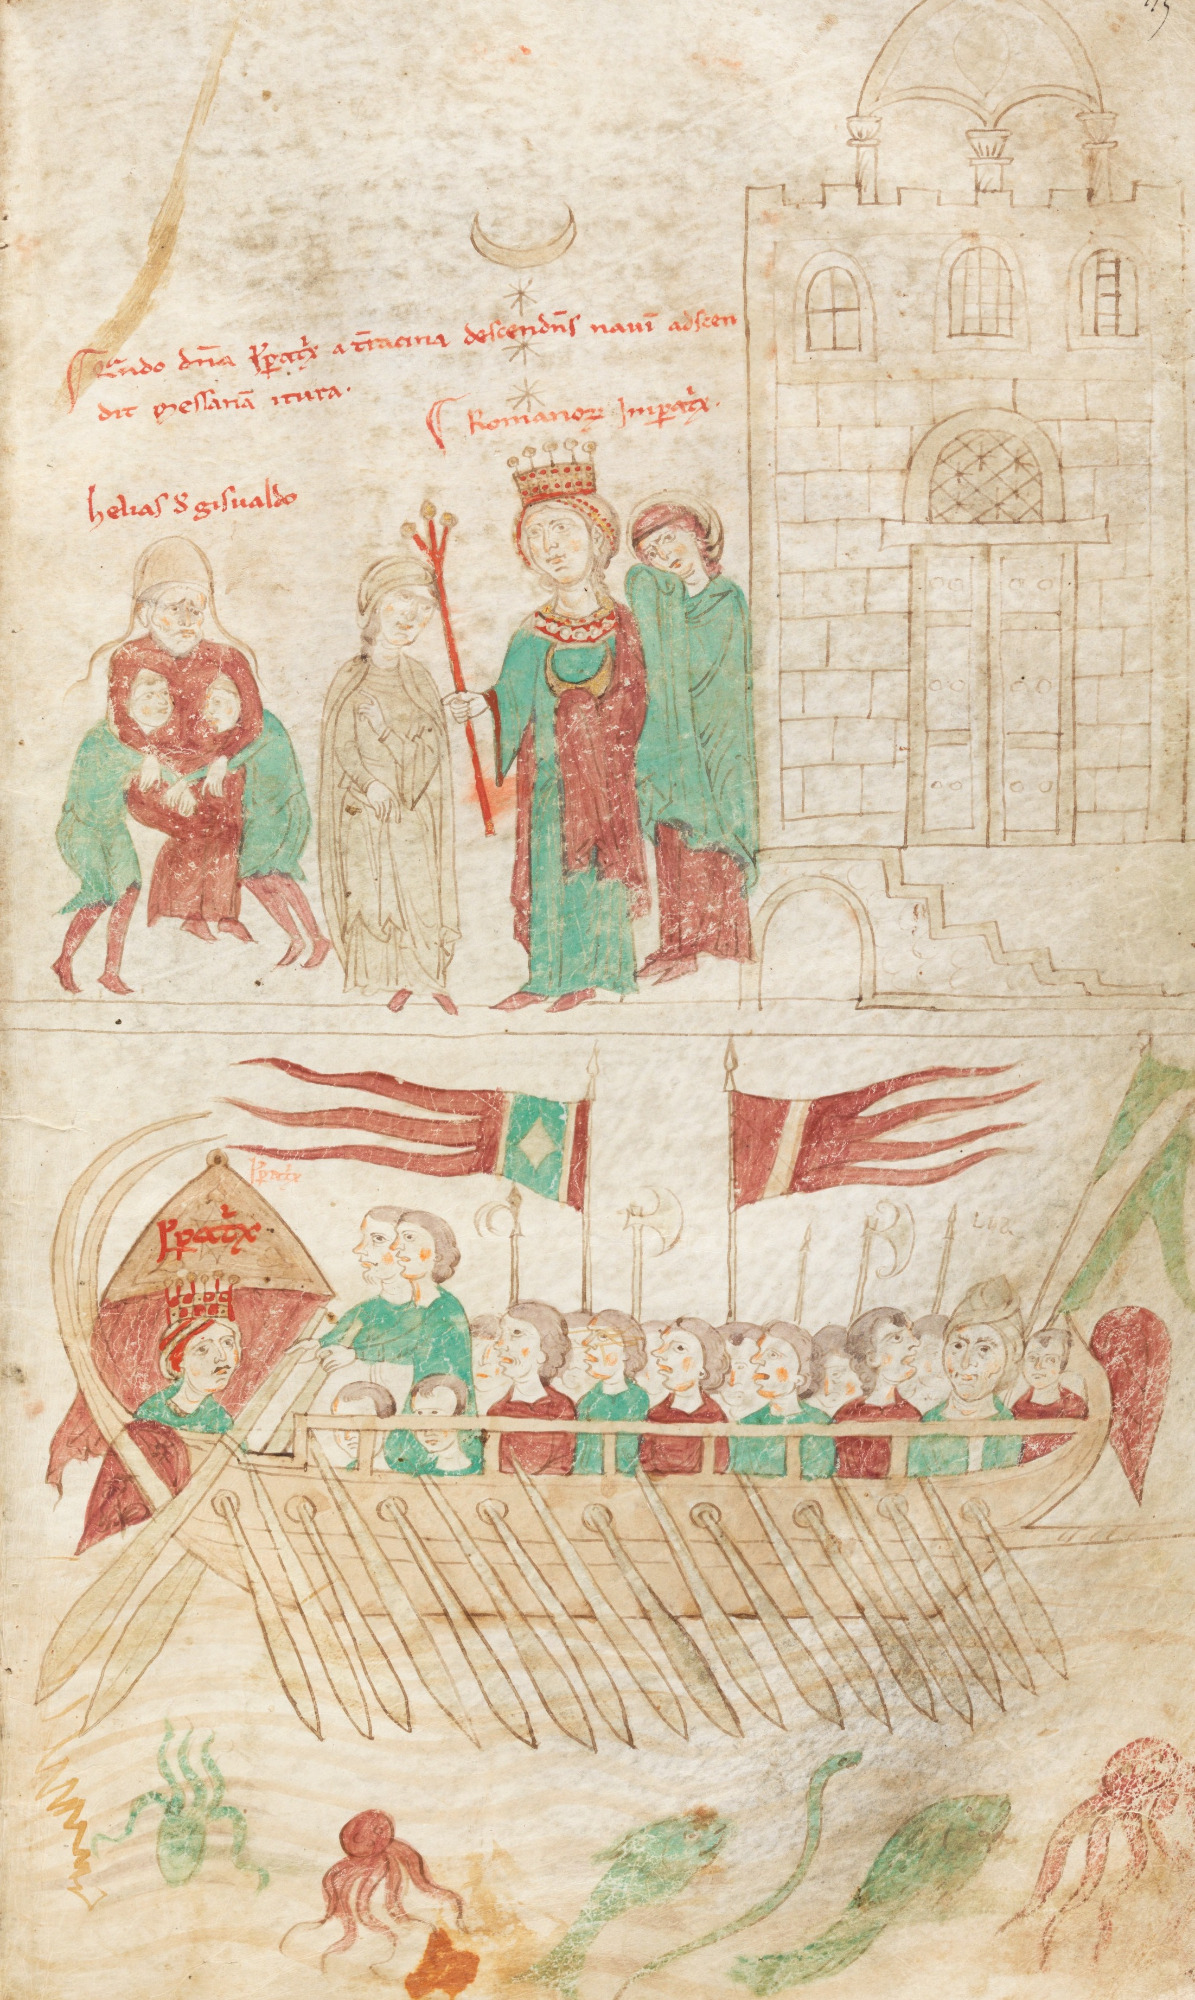 Qn̄do dn̄a Īp̲at͛x a t̄racina descendn̄s navī adscen
dit Messanā itura.
Romanoꝝ Imp̲at͛x.
helias & gisualdo
Īp̲at͛x
Īp̲at͛x